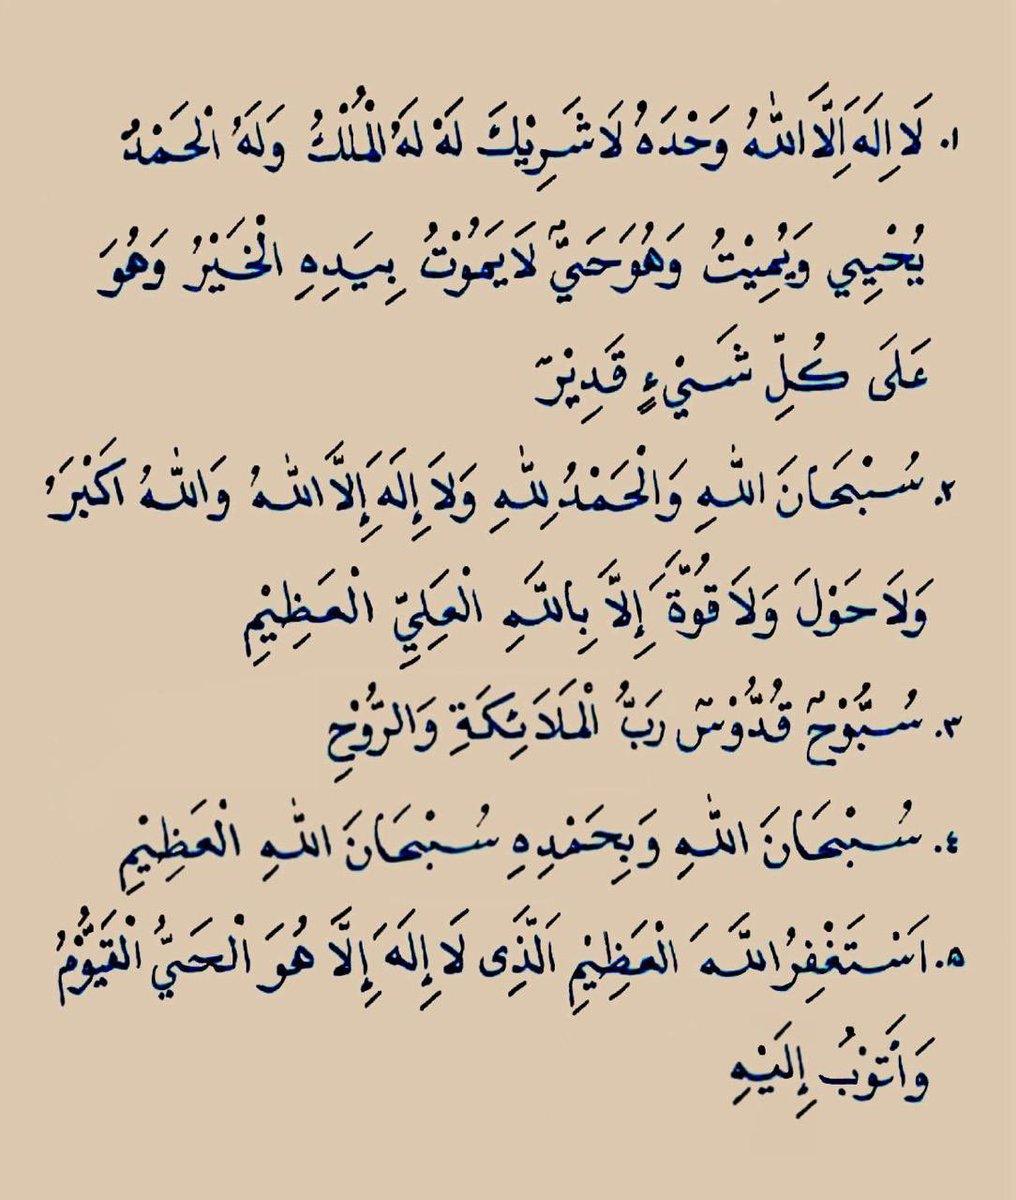 ١. لَا اِلَهَ اِلَّا اللهُ وَحْدَهُ لَا شَرِيْكَ لَهْ لَهُ الْمُلْكُ وَلَهُ الْحَمْدُ
يُحْيِيي وَيُمِيْتُ وَهُوَحَيٌّ لَايَمَوُتُ بِيَدِهِ الْخَيْرُ وَهُوَ
عَلَى كُلِّ شَيْءٍ قَدِيْرٌ
٢. سُبْحَانَ اللهِ وَالْحَمْدُ لِلهِ وَلَا إِلَهَ إِلَّا اللهُ وَاللهُ اَكْبَرُ
وَلَا حَوْلَ وَلَا قُوَّةَ إِلَّا بِاللَّهِ الْعَلِيِّ الْعَظِيْمِ
٣. سُبُّوْحٌ قُدُّوْسٌ رَبُّ الْمَلَائِكَةِ وَالرُّوْحِ
٤. سُبْحَانَ اللهِ وَبِحَمْدِهِ سُبْحَانَ اللهِ الْعَظِيْمِ
۵. اَسْتَغْفِرُاللَّهَ الْعَظِيْمِ اَلَّذِى لَا إِلَهَ إِلَّا هُوَ الْحَيُّ الْقَيُّوْمُ
وَأَتَوْبُ إِلَيْهِ